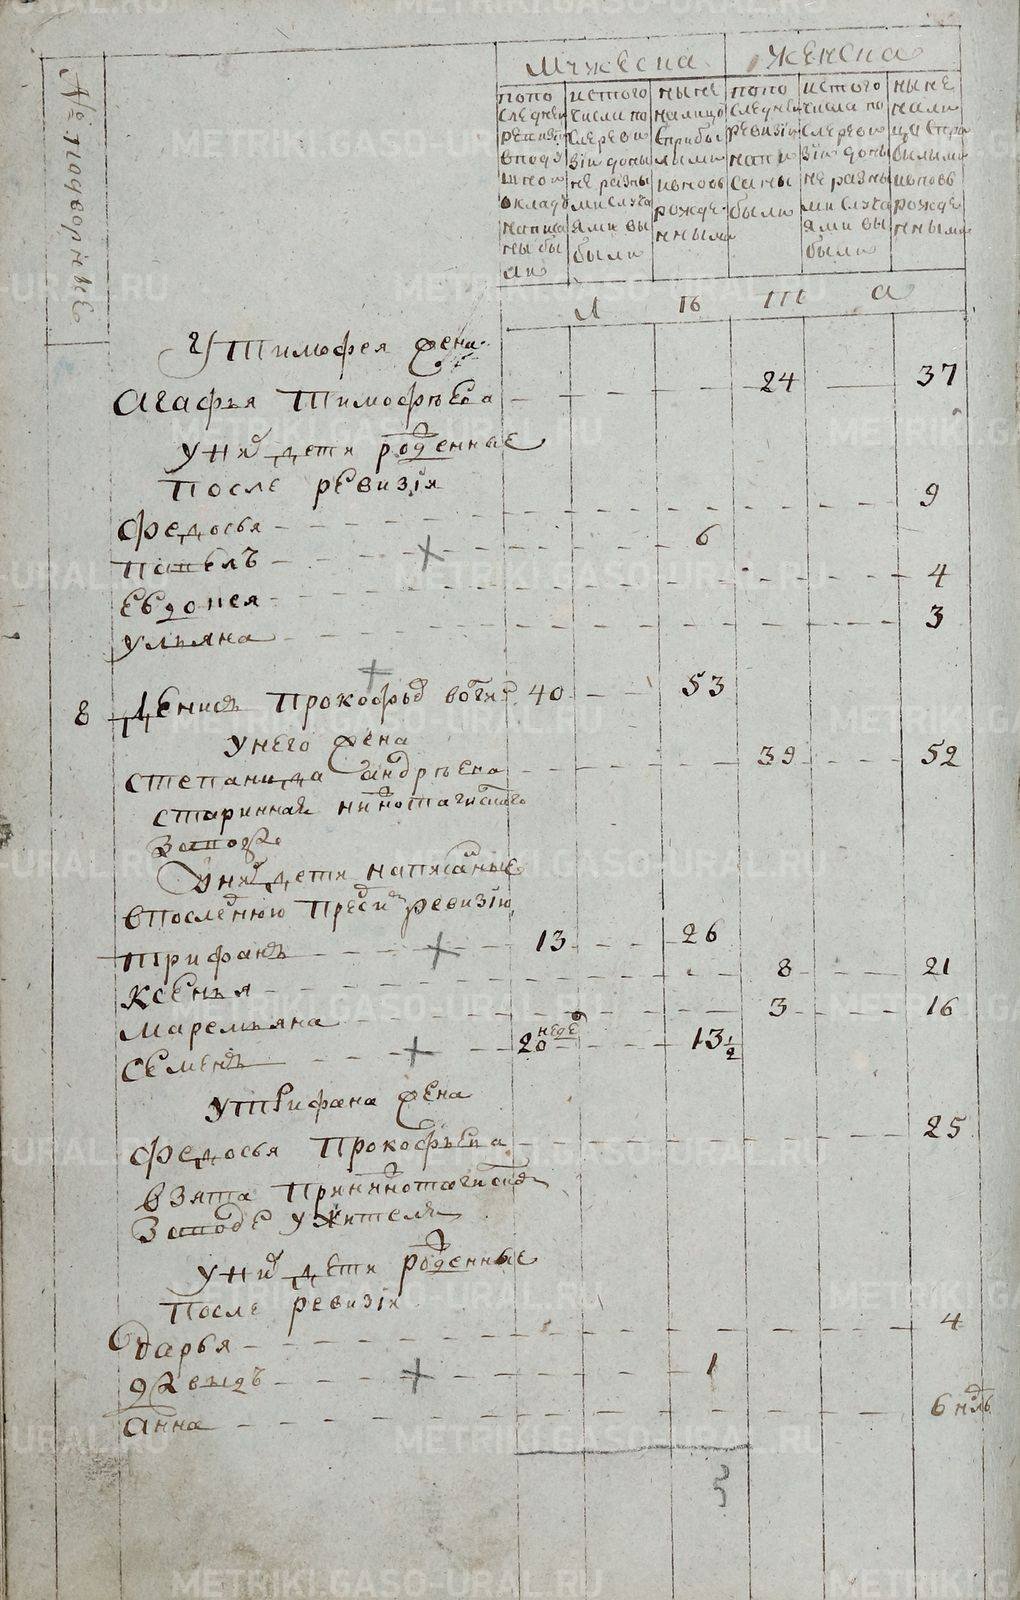 № подворные
Мужеска
Женска
попо
следней
ревизии
вподу
шной
окладъ
написа
ны бы
ли
истого
числа по
слереви
зiи доны
не разны
ми случа
ями вы
были
ныне
налицо
сприбы
лыми
ивновь
рожде
нными
попо
следней
ревизiи
напи
саны
были
истого
числа по
слереви
зiи доны
не разны
ми случа
ями вы
были
ныне
нали
цо спри
былыми
ивновь
рожде
нными
Л Ѣ Т А
2) У Тимофея жена
Агафья Тимофѣева 24 37
у них дети рожденные
После ревизiи
Федосья 9
Павелъ 6
Евдокея 4
Ульяна 3
8 Денисъ Прокофьев 40 53
У него жена
Степанида Андрѣева 39 52
старинная нижнотагильскаго
завода
У них дети написанные
впоследнюю пред сим ревизiю
Трифанъ 13 26
Ксенья 8 21
Маремьяна 3 16
Семенъ 20 неде 13 1/2
У Трифана жена
Федосья Прокофьева 25
взята при нижнотагильском
заводе у жителя
у них дети рожденные
После ревизiи
Дарья 4
Давыдъ 1
Анна 6 нль
METRIKI.GASO-URAL.RU